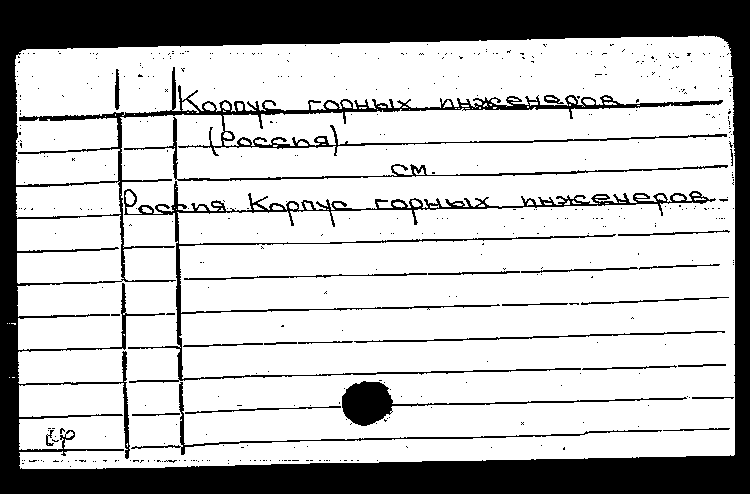 Корпус горных инженеров.
(Россия).
см.
Россия Корпус горных инженеров